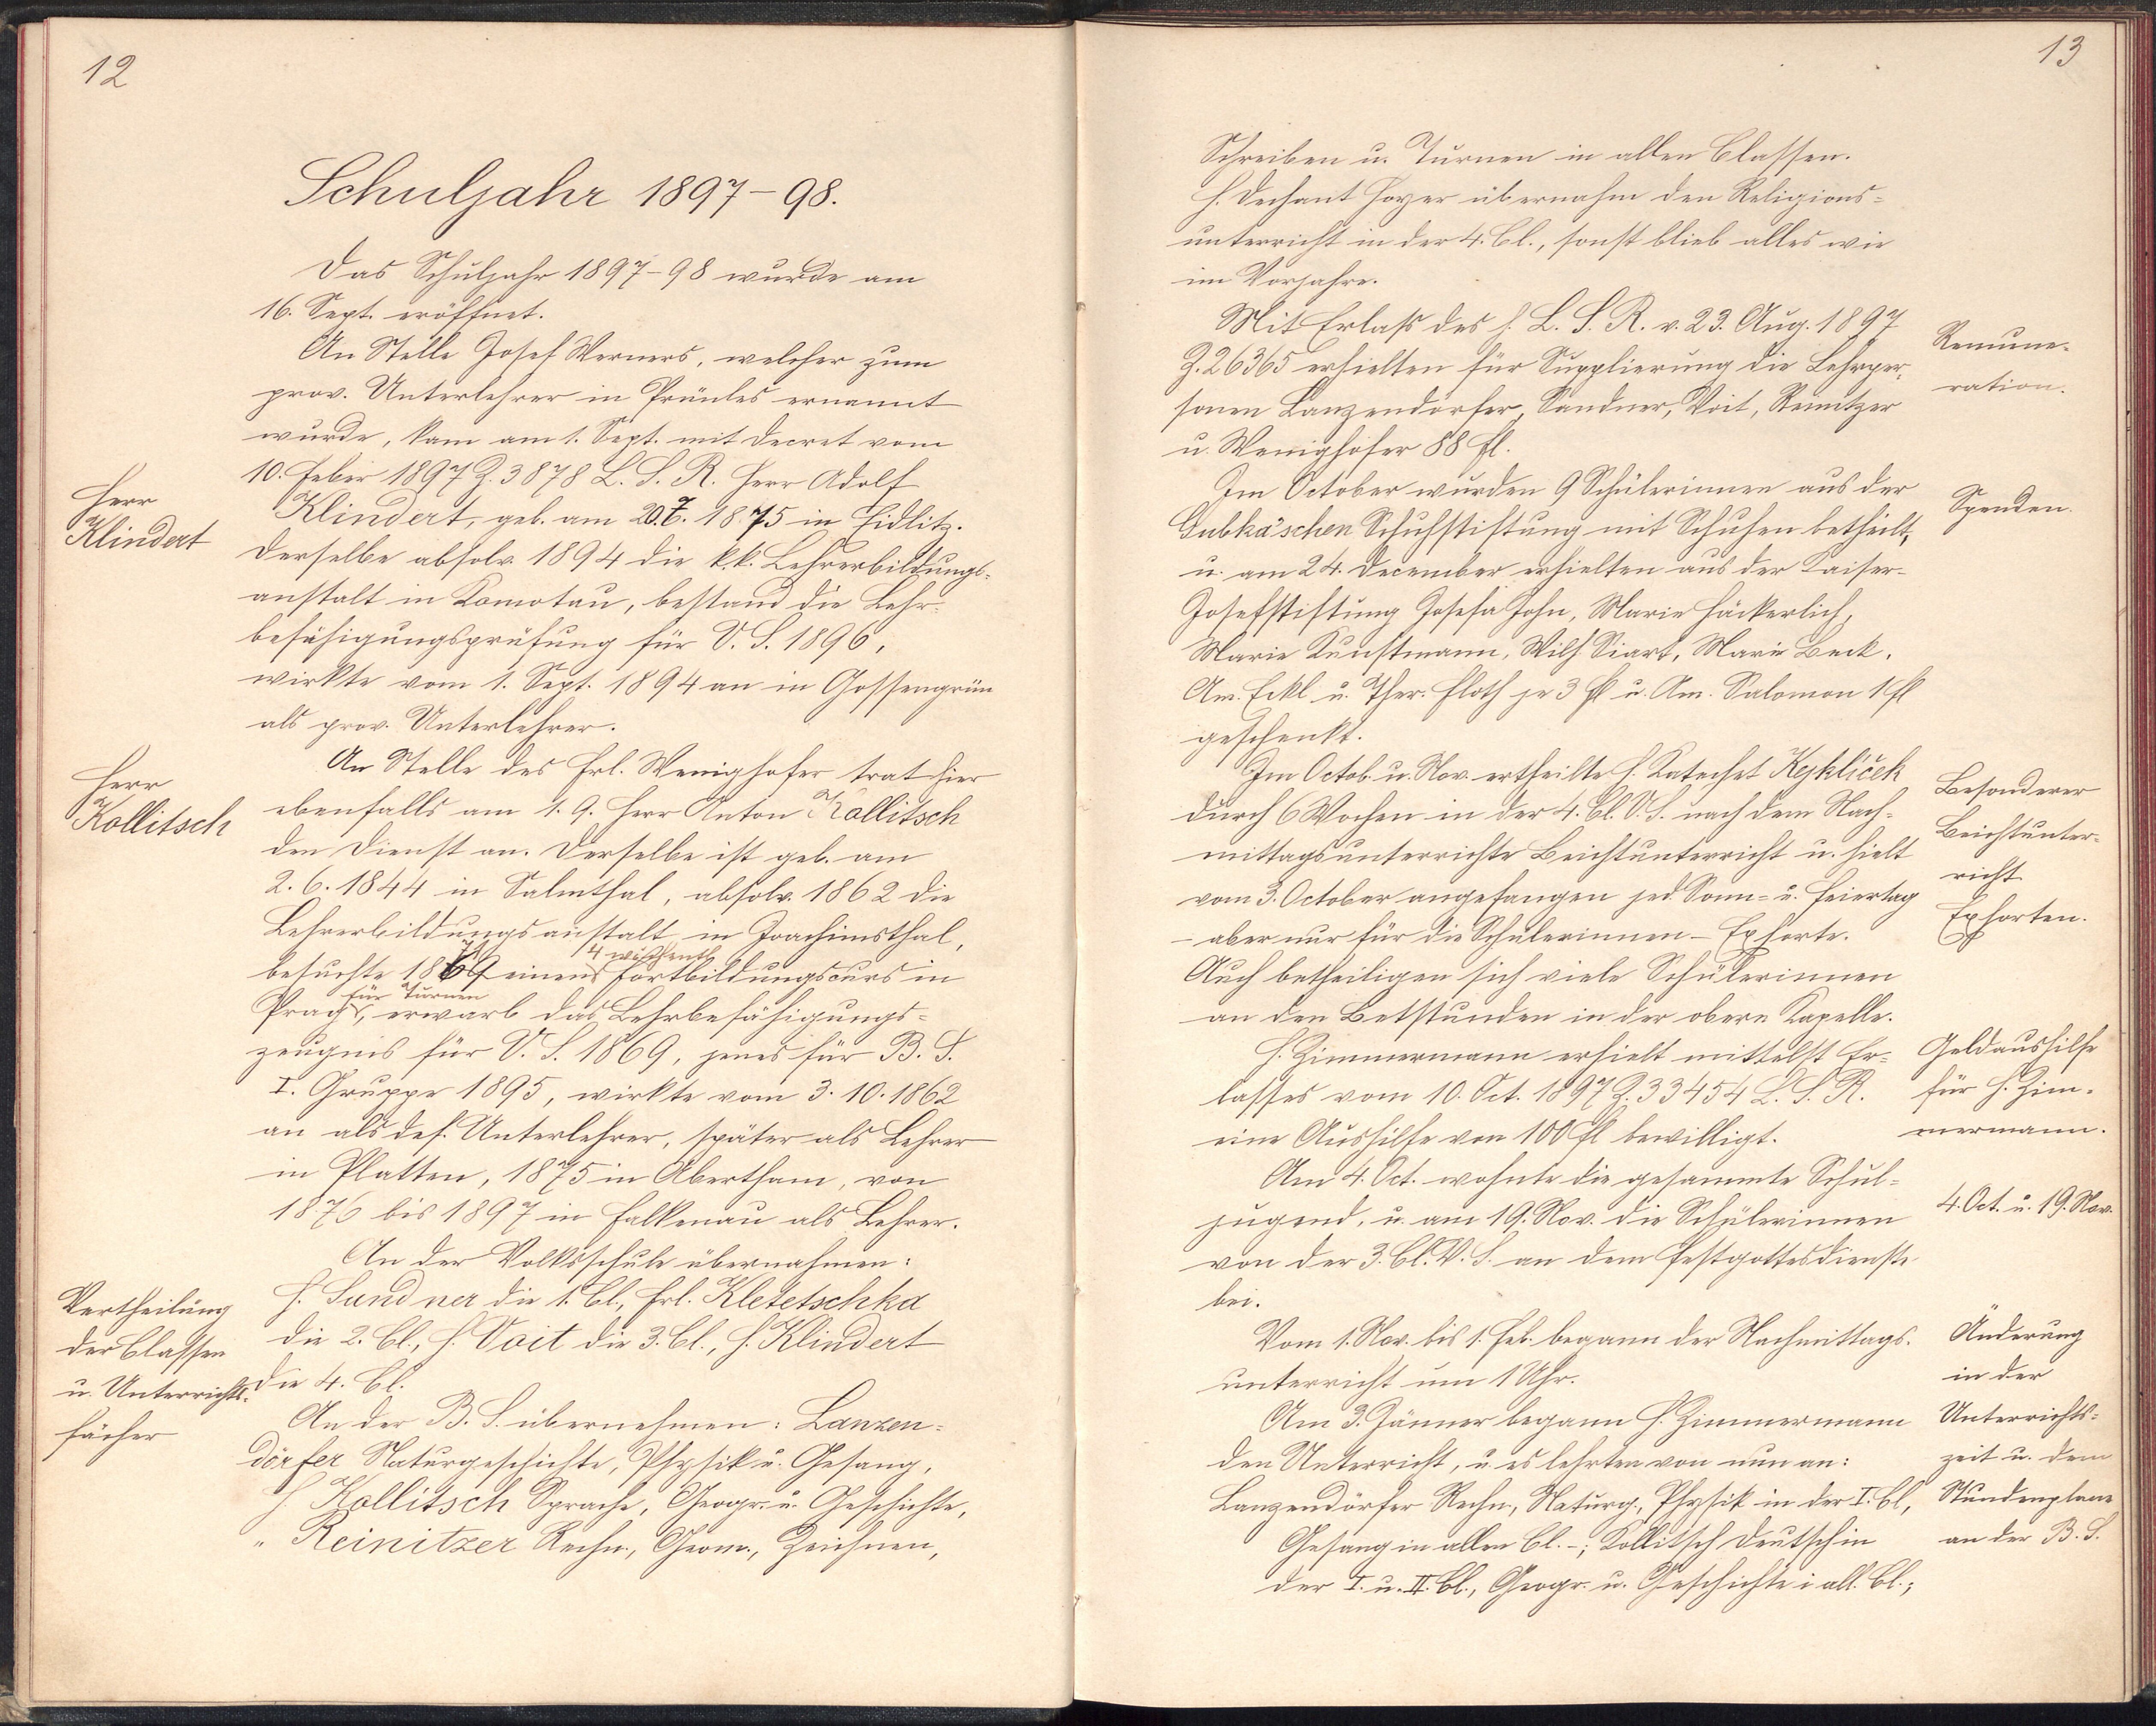 12
Schuljahr 1897-98.
Das Schuljahr 1897-98 wurde am
16. Sept. eröffnet.
An Stelle Josef Werners, welcher zum
prov. Unterlehrer in Prünles ernannt
wurde, kam am 1. Sept. mit Decret vom
10. Feber 1897 Z. 3878 L. S. R. Herr Adolf
Herr
Klindert
Klindert, geb. am 20.7. 1875 in Fidlitz.
Derselbe absolv. 1894 die k.k. Lehrerbildungs-
anstalt in Komotau, bestand die Lehr-
befähigungsprüfung für V. S. 1896,
wirkte vom 1. Sept. 1894 an in Gossengrün
als prov. Unterlehrer.
An Stelle des Frl. Wenighofer trat hier
Herr
Kollitsch
ebenfalls am 1. 9. Herr Anton Kollitsch
den Dienst an. Derselbe ist geb. am
2. 6. 1844 in Salmthal, absolv. 1862 die
Lehrerbildungsanstalt in Joachimsthal,
4 wöchentl.
besuchte 1879 einen Fortbildungscurs in
für Turnen
Prag, erwarb das Lehrbefähigungs-
zeugnis für V. S. 1869, jenes für B. S.
I. Gruppe 1895, wirkte vom 3. 10. 1862
an als def. Unterlehrer, später als Lehrer
in Platten, 1875 in Abertham, von
1876 bis 1897 in Falkenau als Lehrer.
An der Volksschule übernahmen:
Vertheilung
der Classen
u. Unterrichts-
fächer
H. Sandner die 1. Cl., Frl. Kletetschka
die 2. Cl., H. Voit die 3. Cl., H. Klindert
die 4. Cl.
An der B. S. übernehmen: Lanzen-
dörfer Naturgeschichte, Physik u. Gesang,
H. Kollitsch Sprache, Geogr. u. Geschichte,
" Reinitzer Rechn., Geom., Zeichnen,
13
Schreiben u. Turnen in allen Classen.
H. Dechant Hoyer übernahm den Religions-
unterricht in der 4. Cl., sonst blieb alles wie
im Vorjahre.
Mit Erlass des h. L. S. R. v. 23. Aug. 1897
Z. 26365 erhielten für Supplierung die Lehrper-
sonen Lanzendörfer, Sandner, Voit, Reinitzer
u. Wenighofer 88 fl.
Remune-
ration.
Im October wurden 9 Schülerinnen aus der
Gubka'schen Schuhstiftung mit Schuhen betheilt,
u. am 24. December erhielten aus der Kaiser-
Josefstiftung Josefa John, Marie Häckerlich,
Marie Kunstmann, Wilh. Siart, Marie Beck,
Am. Eckl u. Ther. Floth je 3 fl u. Am. Salomon 1 fl
geschenkt.
Spenden.
Im Octob. u. Nov. ertheilte H. Katechet Kejkliček
durch 6 Wochen in der 4. Cl. V. S. nach dem Nach-
mittagsunterrichte Beichtunterricht u. hielt
vom 3. October angefangen jed. Sonn- u. Feiertag
- aber nur für die Schülerinnen - Exhorte.
Auch betheiligen sich viele Schülerinnen
an den Betstunden in der obern Kapelle.
Besonderer
Beichtunter-
richt
Exhorten.
H. Zimmermann erhielt mittelst Er-
lasses vom 10. Oct. 1897 Z. 33454 L. S. R.
eine Aushilfe von 100 fl bewilligt.
Geldaushilfe
für H. Zim-
mermann.
Am 4. Oct. wohnte die gesammte Schul-
jugend, u. am 19. Nov. die Schülerinnen
von der 3. Cl. V. S. an dem Festgottesdienste
bei.
4. Oct. u. 19. Nov.
Vom 1. Nov. bis 1. Feb. begann der Nachmittags-
unterricht um 1 Uhr.
Am 3. Jänner begann H. Zimmermann
den Unterricht, u. es lehrten von nun an:
Lanzendörfer Rechn., Naturg., Physik in der I. Cl,
Gesang in allen Cl. -; Kollitsch Deutsch in
der I. u. II. Cl., Geogr. u. Geschichte i all. Cl.;
Änderung
in der
Unterrichts-
zeit u. dem
Stundenplane
an der B. S.